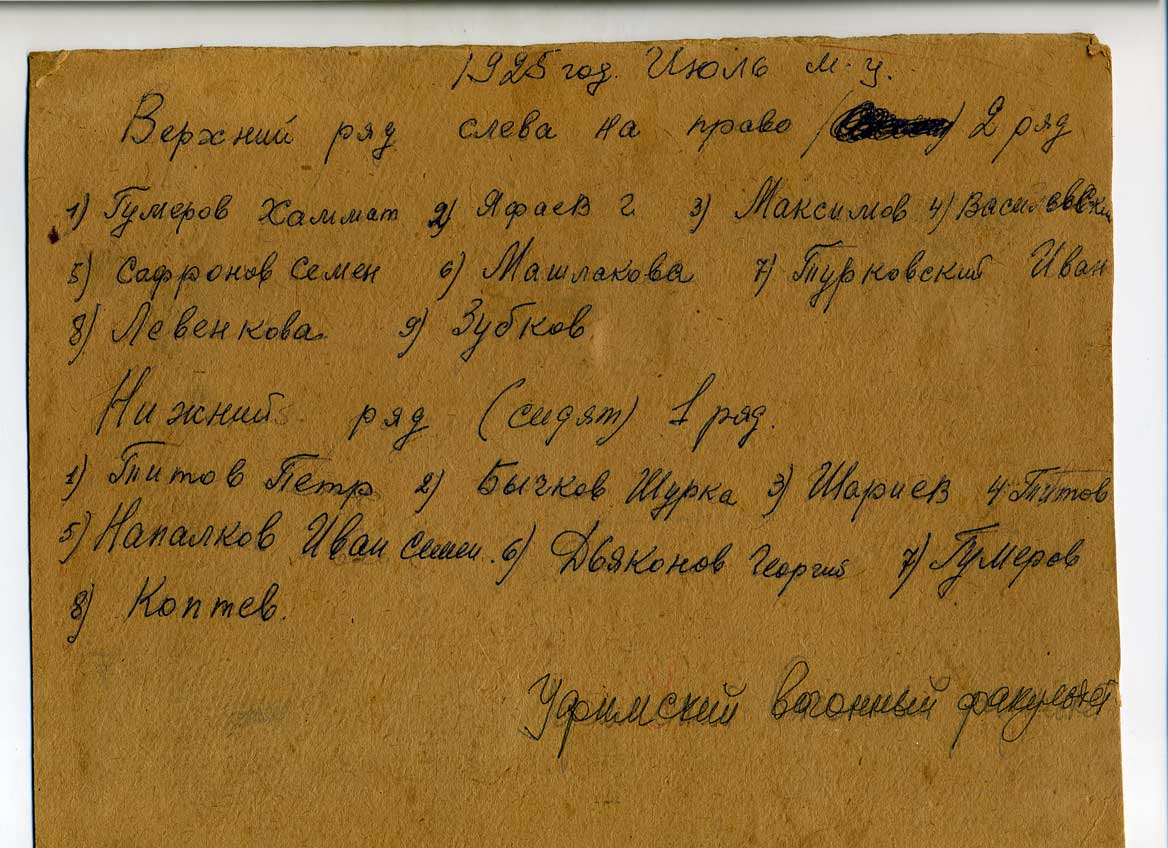 1925 год. Июль м-ц.
Верхний ряд слева на право 2 ряд
1) Гумеров Хаммат 2) Яфаев Г 3) Максимов 4) Василевский
5) Сафронов Семен 6) Машлакова 7) Турковский Иван
8) Левенкова 9) Зубков
Нижний ряд (сидят) 1 ряд.
1) Титов Петр 2) Бычков Шурка 3) Шариев 4 Титов
5) Напалков Иван Семен. 6) Дьяконов Георгий 7) Гумеров
8) Коптев.
Уфимский вагонный факультет